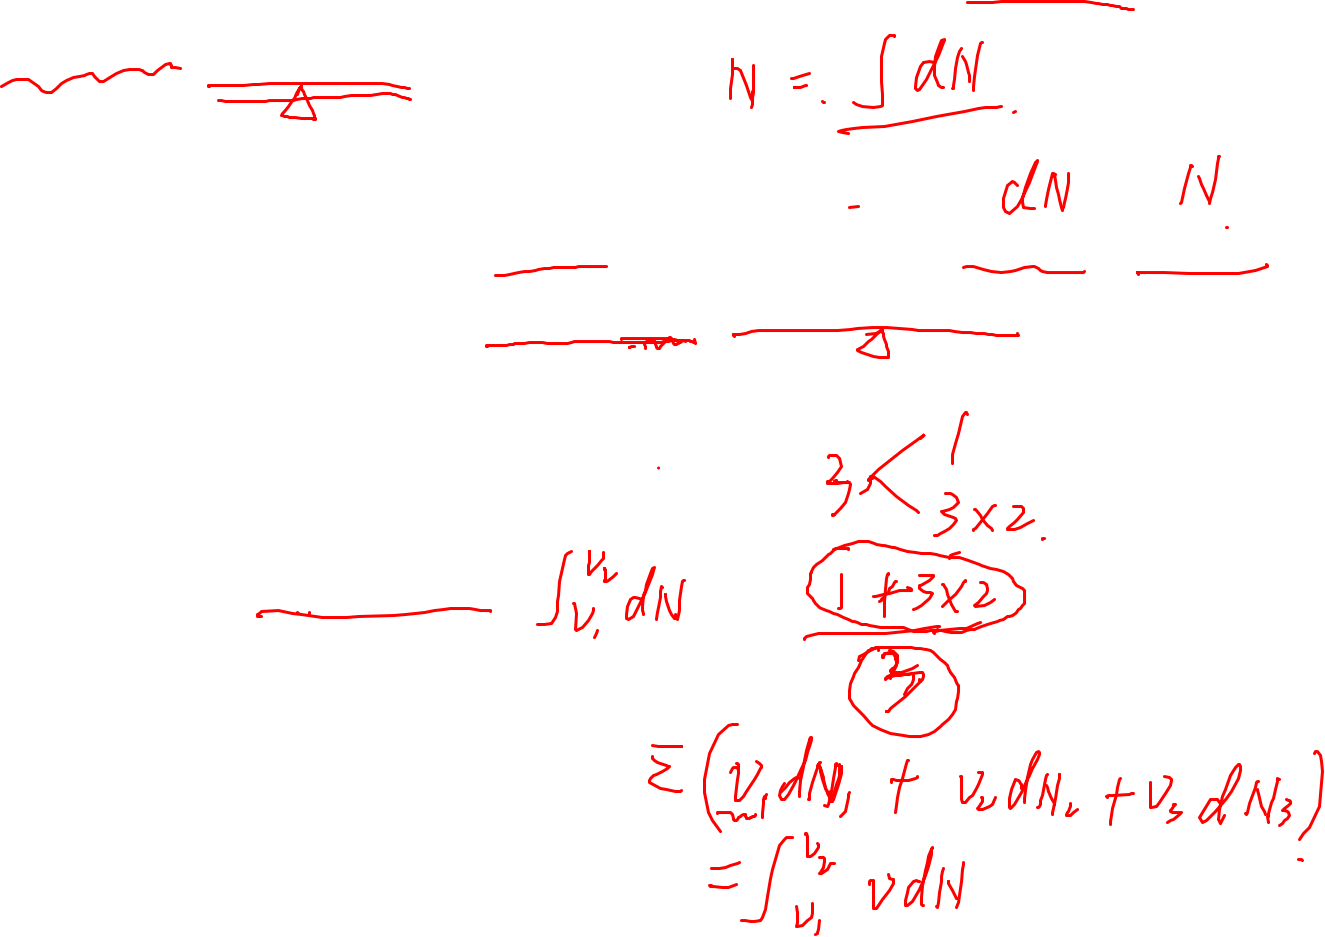 N = ∫ dN
dN N
3 < 1
3×2
∫_{v₁}^{v₂} dN
1+3×2
3
Σ(v₁dN₁ + v₂dN₂ + v₃dN₃)
= ∫_{v₁}^{v₂} v dN